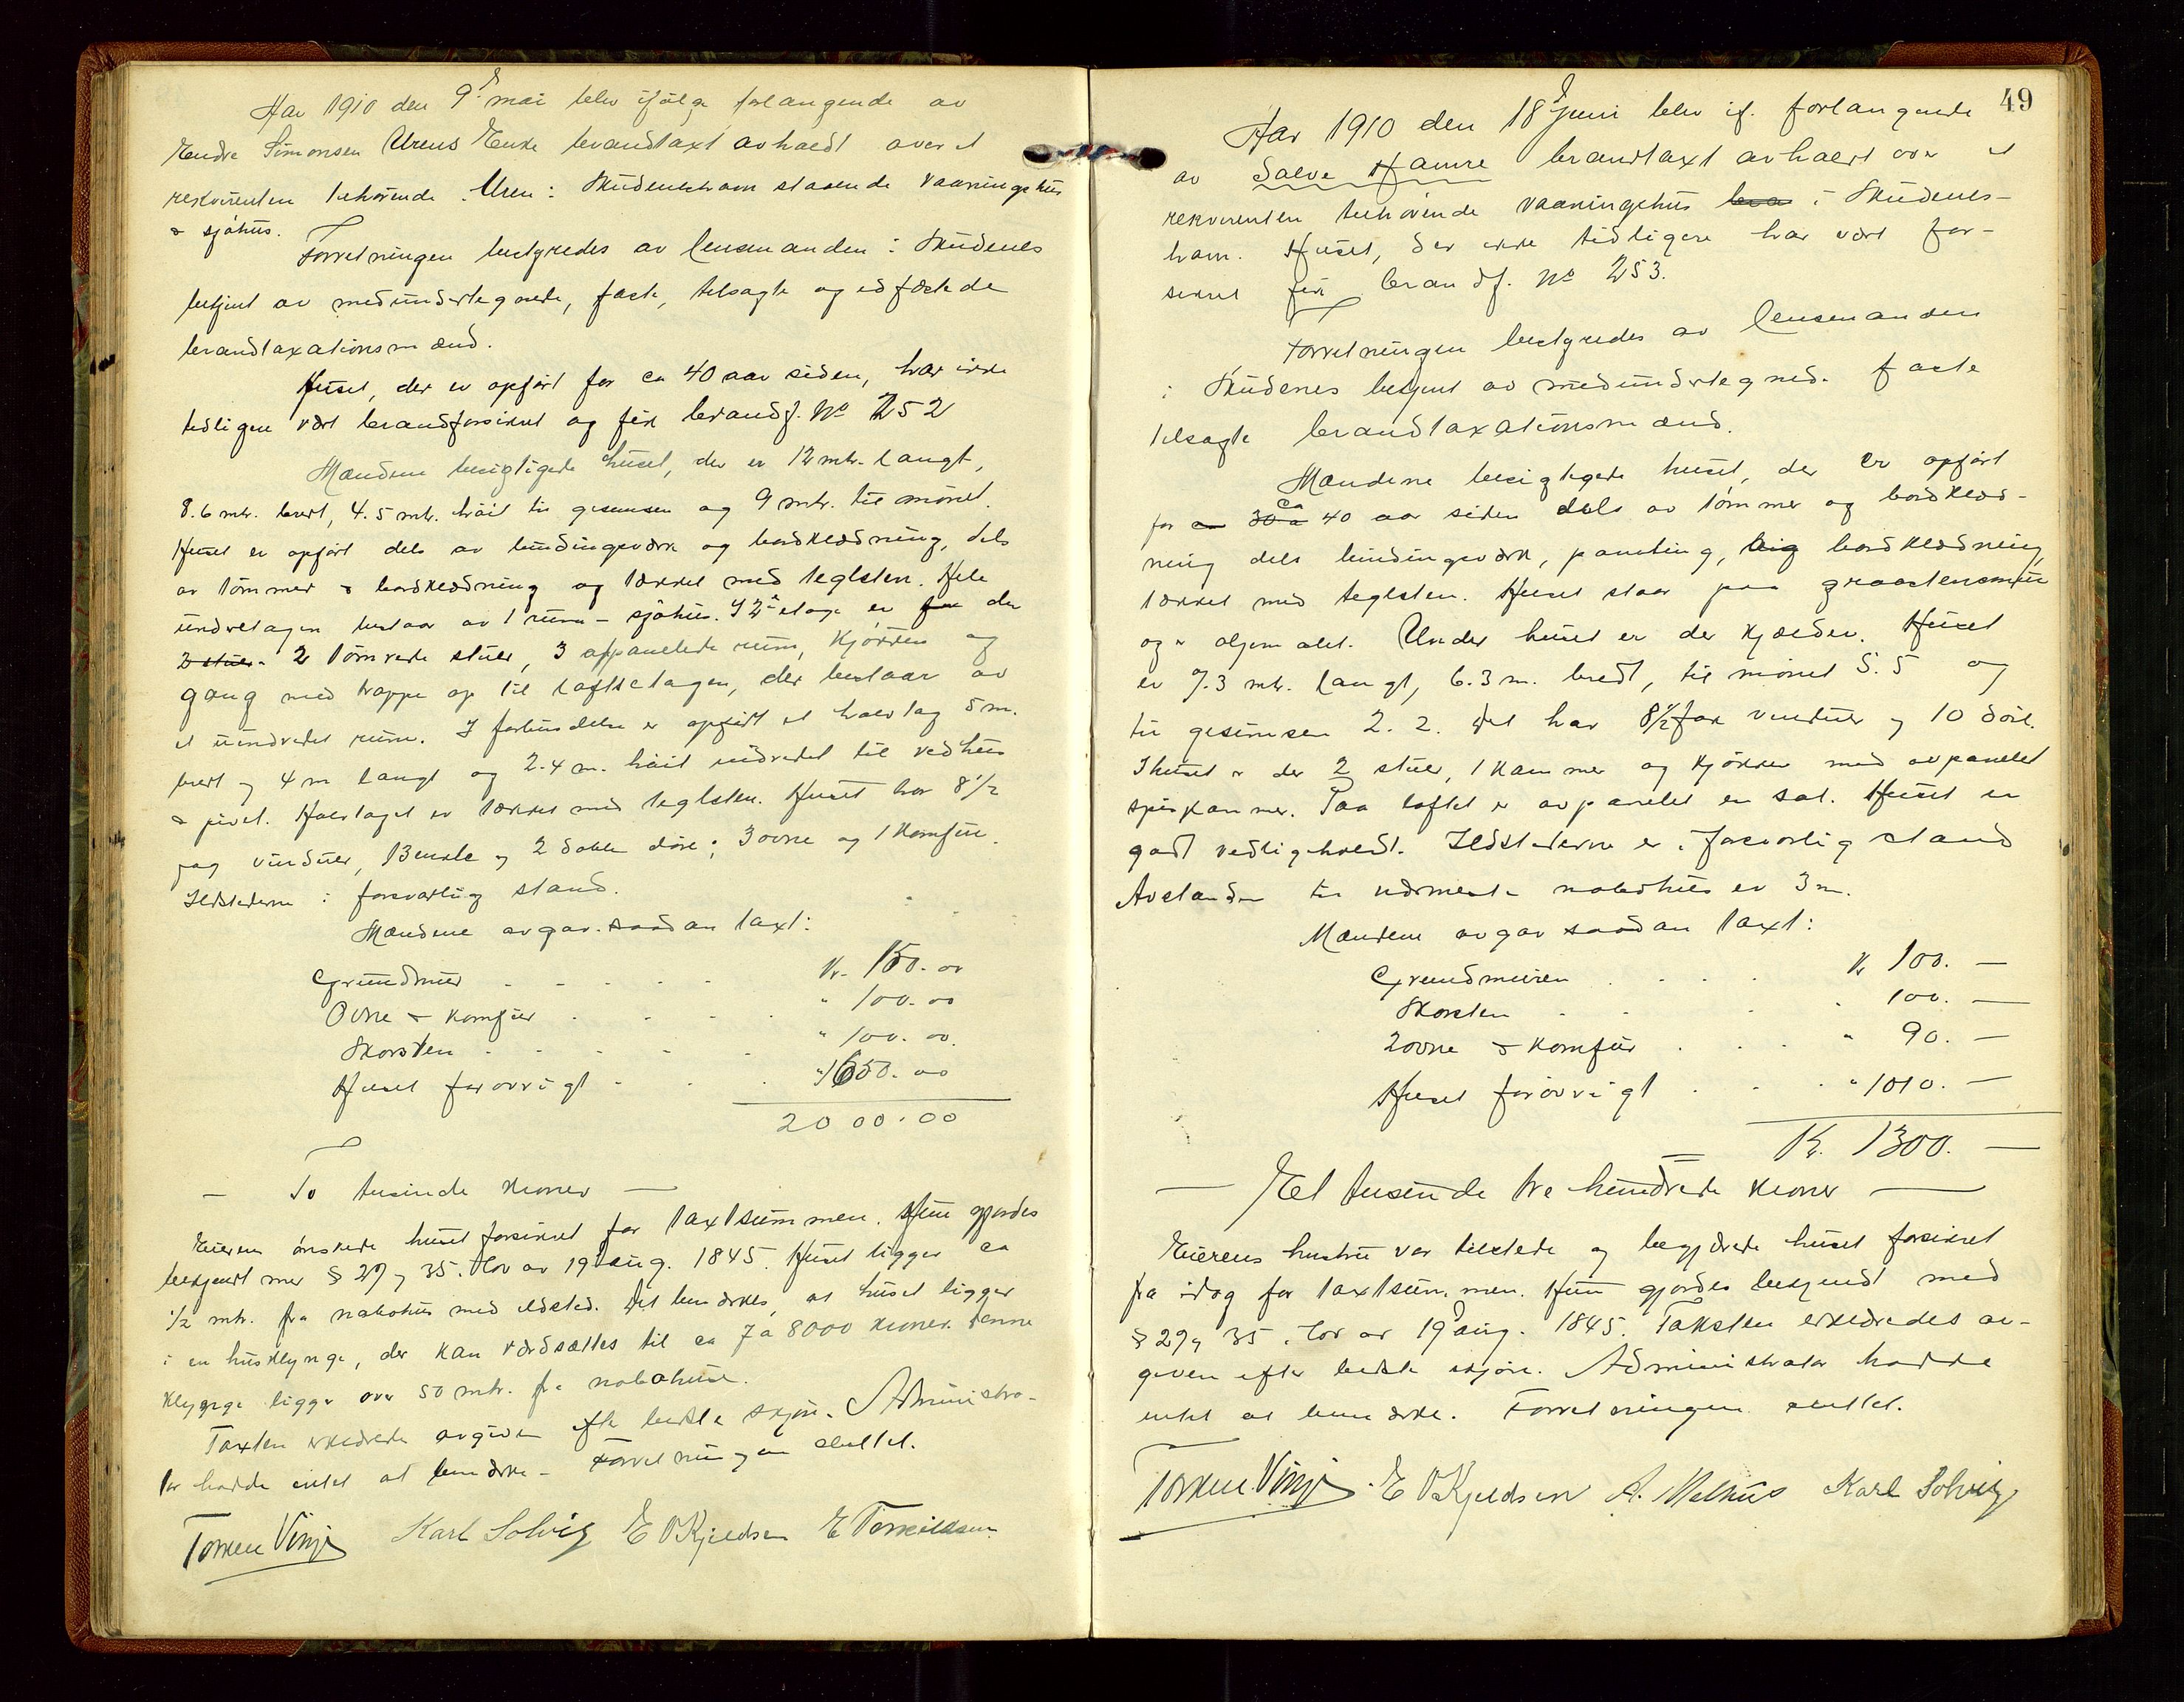 Aar 1910 den 9d. mai blev ifølge forlangende av
Endre Simonsen Urens Enke brandtaxt avholdt over et
rekvirenten tilhørende Uren i Skudeneshavn staaende vaaningshus
& sjøhus.
Forretningen bestyredes av lensmanden i Skudenes
betjent av medundertegnede, faste, tilsagte og edfæstede
brandtaxationsmænd.
Huset, der er opført for ca 40 aar siden, har ikke
tidligere vært brandforsikret og fik brandf. No 252
Mændene besigtigede huset, der er 12 mtr. langt,
8.6 mtr. bredt, 4.5 mtr. høit til gesimsen og 9 mtr. til mønet.
Huset er opført dels av bindingsværk og bordklædning, dels
av tømmer & bordklædning og tækket med teglsten. Hele
underetagen bestaar av 1 rum - sjøhus. I 2. etage er der
2 stuer. 2 tømrede stuer, 3 afpanelede rum, kjøkken og
gang med trappe op til loftsetagen, der bestaar av
et uindredet rum. I forbindelse er opført et halvtag 5 m.
bredt og 4 m langt og 2.4 m. høit indredet til vedhus
& privet. Halvtaget er tækket med teglsten. Huset har 8 1/2
fag vinduer, 13 enkle og 2 doble døre; 3 ovne og 1 komfur.
Ildstederne i forsvarlig stand.
Mændene avgav saadan taxt:
Grundmur Kr. 150.00
Ovne & komfur " 100.00
Skorsten " 100.00
Huset forøvrigt " 1650.00
2000.00
— To tusinde kroner —
Eieren ønskede huset forsikret for taxtsummen. Hun gjordes
bekjendt med § 27 og 35 i lov av 19d aug. 1845. Huset ligger ca
1/2 mtr. fra nabohus med ildsted. Det bemærkes, at huset ligger
i en husklynge, der kan værdsættes til ca 7 à 8000 kroner. Denne
klynge ligger over 50 mtr. fra nabohuse.
Taxten erklærede avgiven efter bedste skjøn. Administra-
tor hadde intet at bemærke. Forretningen sluttet.
Torkel Vinje Karl Solvig E O Kjeldsen E Torkildsen
49
Aar 1910 den 18d juni blev if. forlangende
av Salve Hamre brandtaxt avholdt over et
rekvirenten tilhørende vaaningshus bra i Skudenes-
havn. Huset, der ikke tidligere har vært for-
sikret fik brandf. No 253.
Forretningen bestyredes av lensmanden
i Skudenes betjent av medundertegned. faste
tilsagte brandtaxationsmænd.
Mændene besigtigede huset, der er opført
for ca 30 a ca 40 aar siden dels av tømmer og bordklæd-
ning dels bindingsværk, paneling, og bordklædning,
tækket med teglsten. Huset staar paa graastensmur
og er oljemalet. Under huset er der kjælder. Huset
er 7.3 mtr. langt, 6.3 m. bredt, til mønet 5.5 og
til gesimsen 2.2. Det har 8 1/2 fag vinduer og 10 døre.
I huset er der 2 stuer, 1 kammer og kjøkken med avpanelet
spiskammer. Paa loftet er avpanelet en sal. Huset er
godt vedligeholdt. Ildstederne er i forsvarlig stand
Avstanden til nærmeste nabohus er 3 m.
Mændene avgav saadan taxt:
Grundmuren Kr 100. —
Skorsten " 100. —
2 ovne & komfur " 90. —
Huset forøvrigt " 1010. —
Kr. 1300. —
— Et tusinde tre hundrede kroner —
Eierens hustru var tilstede og begjærede huset forsikret
fra idag for taxtsummen. Hun gjordes bekjendt med
§ 27 og 35 i lov av 19d aug. 1845. Taksten erklæredes av-
given efter bedste skjøn. Administrator hadde
intet at bemærke. Forretningen sluttet.
Torkel Vinje. E O Kjeldsen A. Melhus Karl Solvig